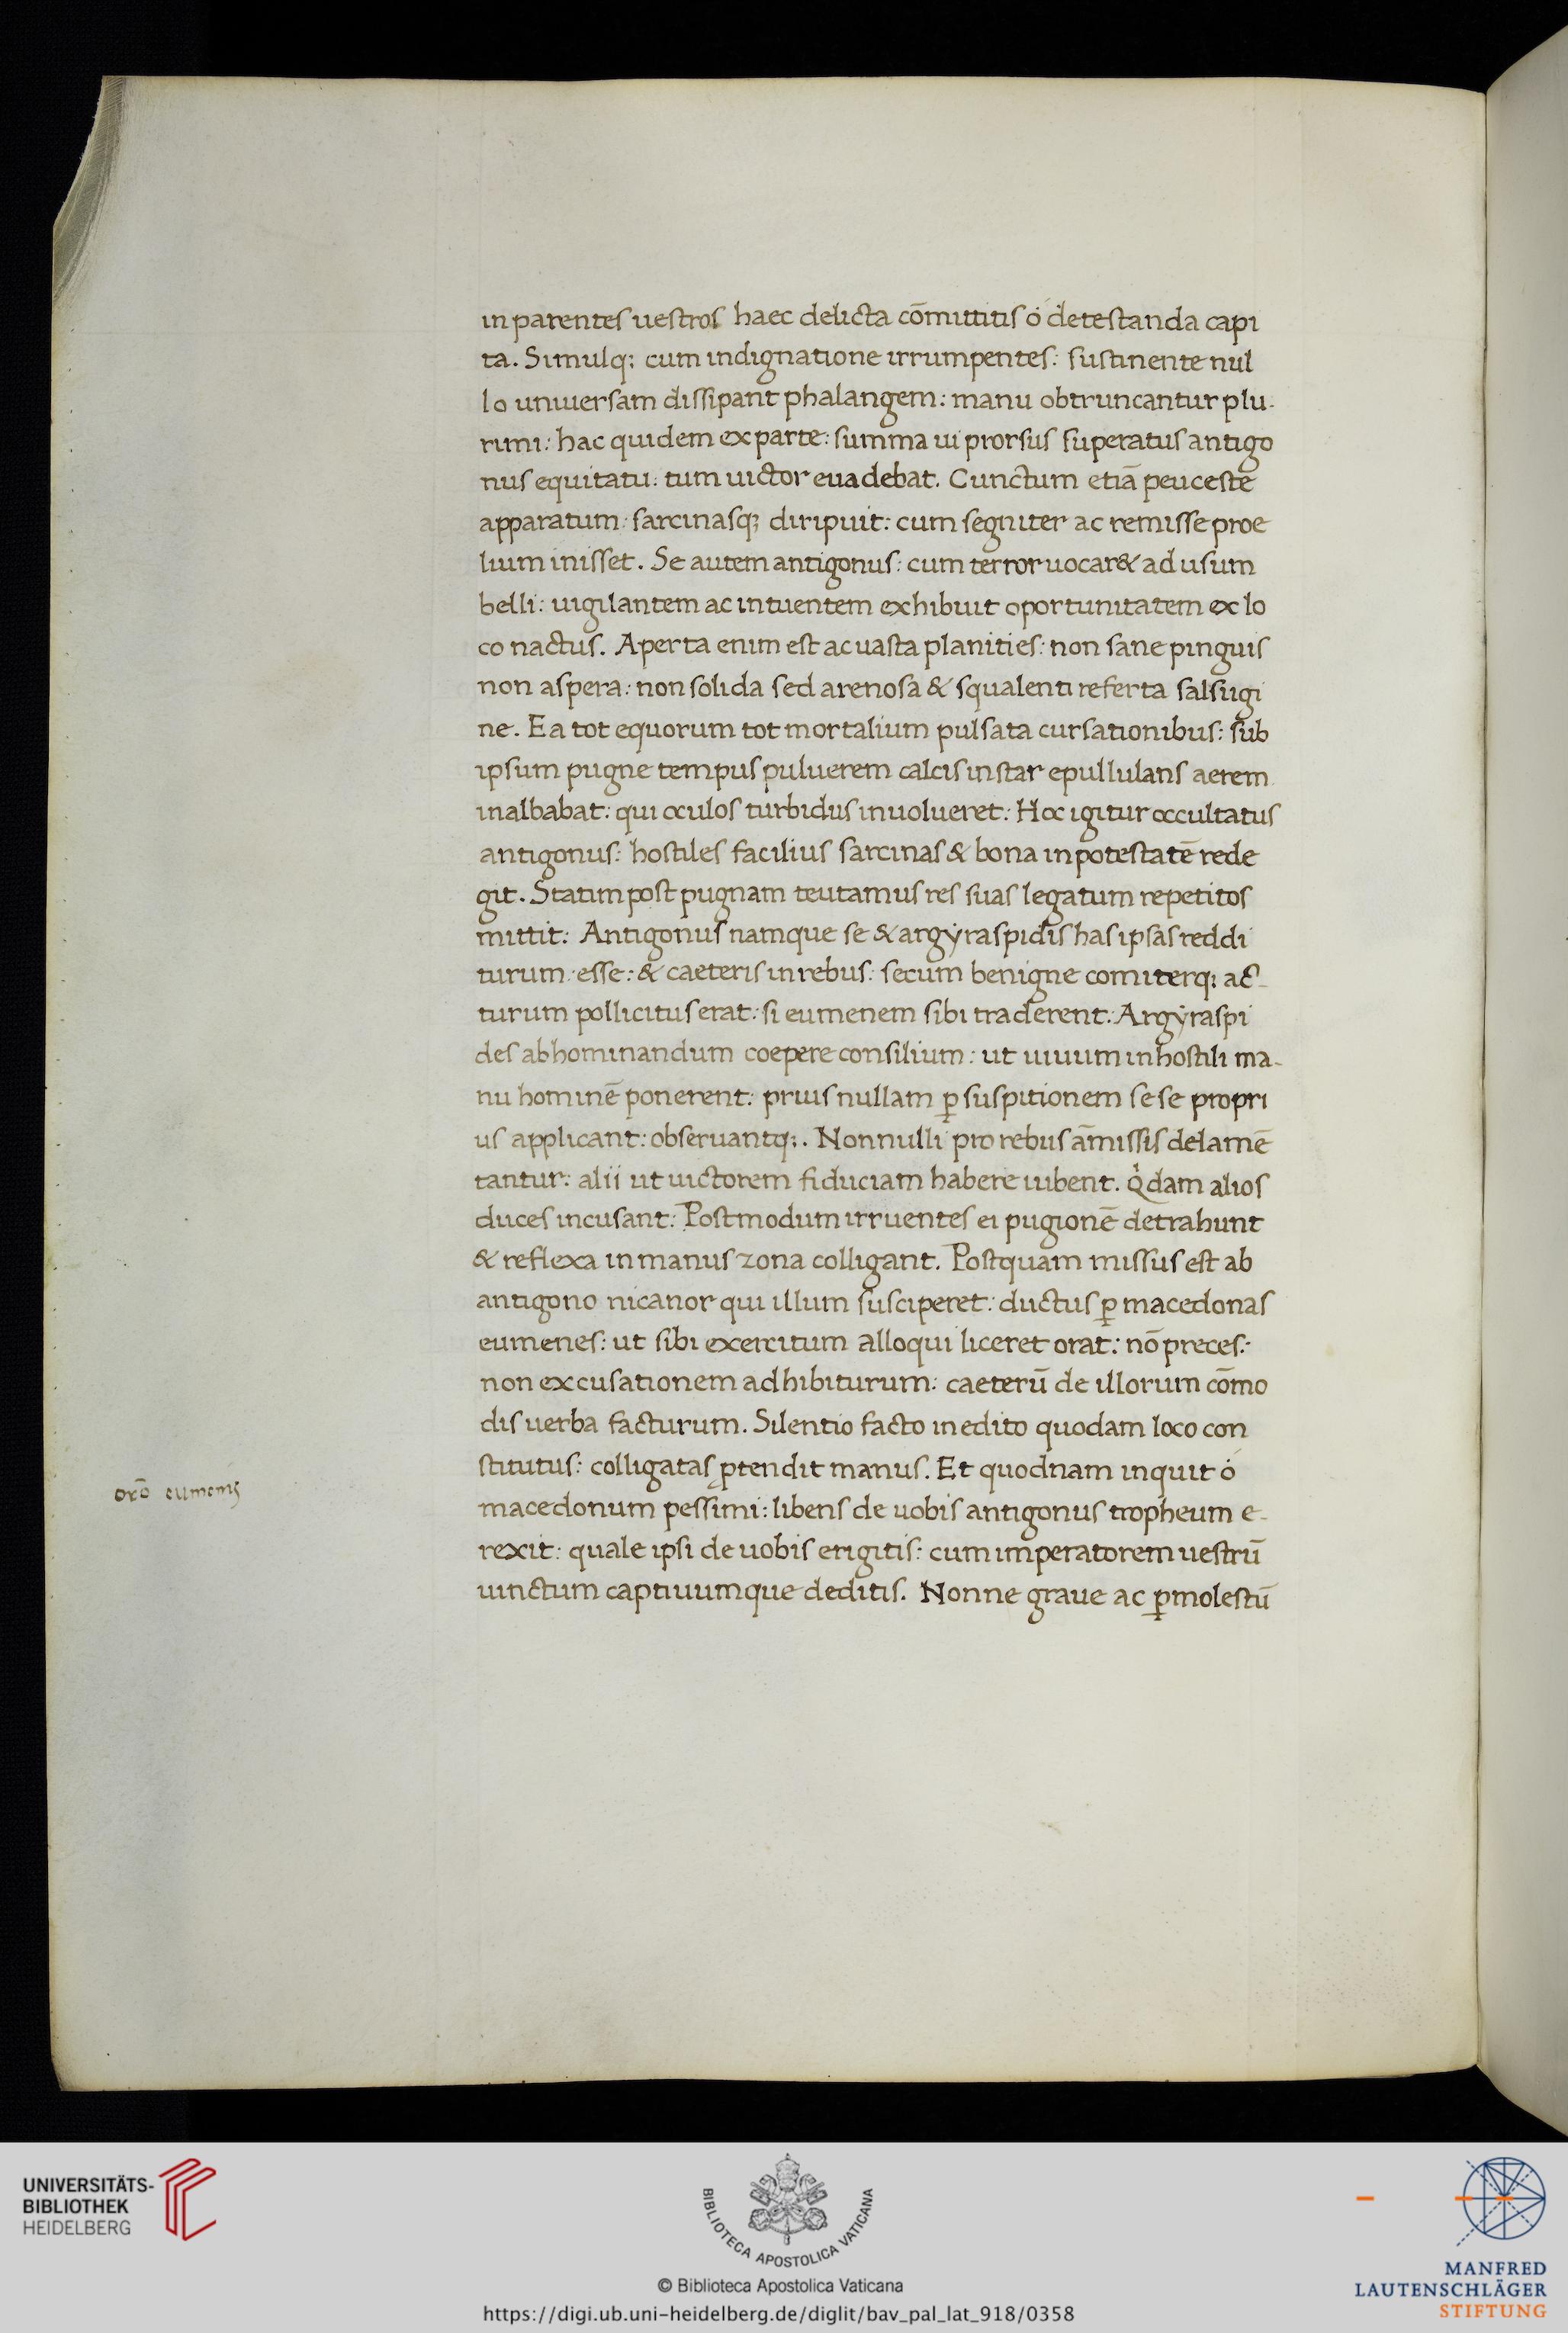 in parentes uestros haec delicta cōmittitis ó detestanda capi
ta. Simulq; cum indignatione irrumpentes: sustinente nul
lo uniuersam dissipant phalangem: manu obtruncantur plu-
rimi: hac quidem ex parte: summa ui prorsus superatus antigo
nus equitatu: tum uictor euadebat. Cunctum etiā peuceste
apparatum: sarcinasq; diripuit: cum segniter ac remisse proe
lium inisset. Se autem antigonus: cum terror uocar& ad usum
belli: uigilantem ac intuentem exhibuit oportunitatem ex lo
co nactus. Aperta enim est ac uasta planities: non sane pinguis
non aspera: non solida sed arenosa & squalenti referta salsugi
ne. Ea tot equorum tot mortalium pulsata cursationibus: sub
ipsum pugne tempus puluerem calcis instar epullulans aerem
inalbabat: qui oculos turbidus inuolueret: Hoc igitur occultatus
antigonus: hostiles facilius sarcinas & bona in potestatē rede
git. Statim post pugnam teutamus res suas legatum repetitos
mittit: Antigonus namque se & argyraspidis has ipsas reddi
turum esse: & caeteris in rebus: secum benigne comiterq; ac-
turum pollicitus erat: si eumenem sibi traderent: Argyraspi
des abhominandum coepere consilium: ut uiuum in hostili ma-
nu hominē ponerent: prius nullam ꝑ suspitionem se se propri
us applicant: obseruantq;. Nonnulli pro rebus āmissis delamē
tantur: alii ut uictorem fiduciam habere iubent. Qdam alios
duces incusant: Postmodum irruentes ei pugionē detrahunt
& reflexa in manus zona colligant. Postquam missus est ab
antigono nicanor qui illum susciperet: ductus ꝑ macedonas
eumenes: ut sibi exercitum alloqui liceret orat: nō preces:
non excusationem adhibiturum: caeterū de illorum cōmo
dis uerba facturum. Silentio facto in edito quodam loco con
stitutus: colligatas ꝓtendit manus. Et quodnam inquit ó
orō eumenis
macedonum pessimi: libens de uobis antigonus tropheum e-
rexit: quale ipsi de uobis erigitis: cum imperatorem uestrū
uinctum captiuumque deditis. Nonne graue ac ꝑmolestū
UNIVERSITÄTS-
BIBLIOTHEK
HEIDELBERG
BIBLIOTECA APOSTOLICA VATICANA
© Biblioteca Apostolica Vaticana
https://digi.ub.uni-heidelberg.de/diglit/bav_pal_lat_918/0358
MANFRED
LAUTENSCHLÄGER
STIFTUNG